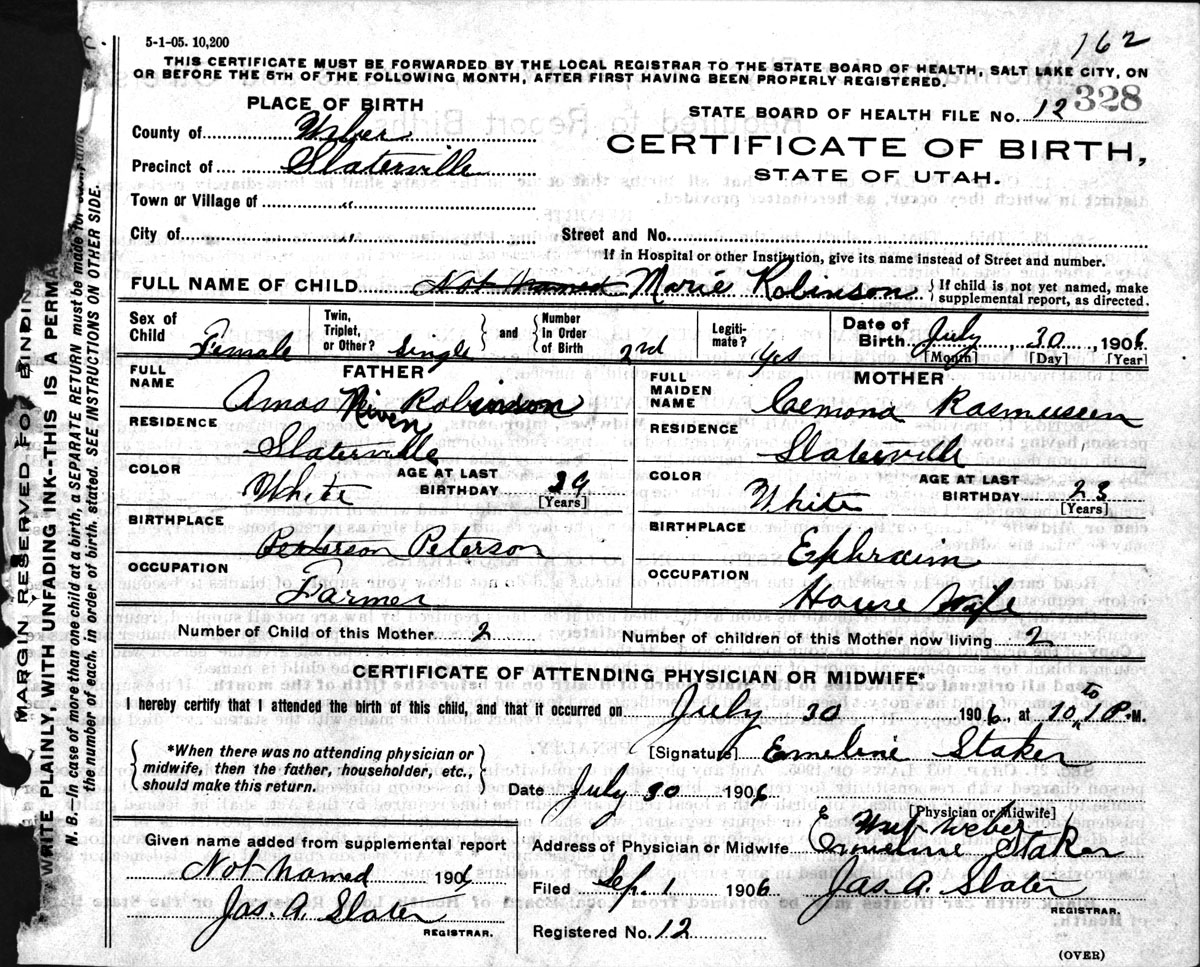 5-1-05. 10,200
162
THIS CERTIFICATE MUST BE FORWARDED BY THE LOCAL REGISTRAR TO THE STATE BOARD OF HEALTH, SALT LAKE CITY, ON
OR BEFORE THE 5TH OF THE FOLLOWING MONTH, AFTER FIRST HAVING BEEN PROPERLY REGISTERED.
328
PLACE OF BIRTH
STATE BOARD OF HEALTH FILE No. 12
County of Weber
CERTIFICATE OF BIRTH,
Precinct of Slaterville
STATE OF UTAH.
Town or Village of "
City of " Street and No.
If in Hospital or other Institution, give its name instead of Street and number.
FULL NAME OF CHILD Not Named Marie Robinson { If child is not yet named, make supplemental report, as directed.
Sex of Child Female Twin, Triplet, or Other? Single and Number in Order of Birth 2nd Legitimate? Yes Date of Birth July 30 1906
[Month] [Day] [Year]
FATHER
MOTHER
FULL NAME Amos Niven Robinson
FULL MAIDEN NAME Rasmussen
RESIDENCE Slaterville
RESIDENCE Slaterville
COLOR White AGE AT LAST BIRTHDAY 29 [Years]
COLOR White AGE AT LAST BIRTHDAY 23 [Years]
BIRTHPLACE Peterson
BIRTHPLACE Ephraim
OCCUPATION Farmer
OCCUPATION House Wife
Number of Child of this Mother 2 Number of children of this Mother now living 2
CERTIFICATE OF ATTENDING PHYSICIAN OR MIDWIFE*
I hereby certify that I attended the birth of this child, and that it occurred July 30 1906 at 10 to 1 P. M.
*When there was no attending physician or midwife, then the father, householder, etc., should make this return.
[Signature] Emeline Staker
Date July 30 1906.
[Physician or Midwife]
Address of Physician or Midwife Weber
Emeline Staker
Given name added from supplemental report
Not Named 190
Jas. A. Slater
REGISTRAR.
Filed Sep. 1 1906 Jas. A. Slater
REGISTRAR.
Registered No. 12
(OVER)
MARGIN RESERVED FOR BINDIN
WRITE PLAINLY, WITH UNFADING INK--THIS IS A PERMA
N. B.—In case of more than one child at a birth, a SEPARATE RETURN must be made for
the number of each, in order of birth, stated. SEE INSTRUCTIONS ON OTHER SIDE.